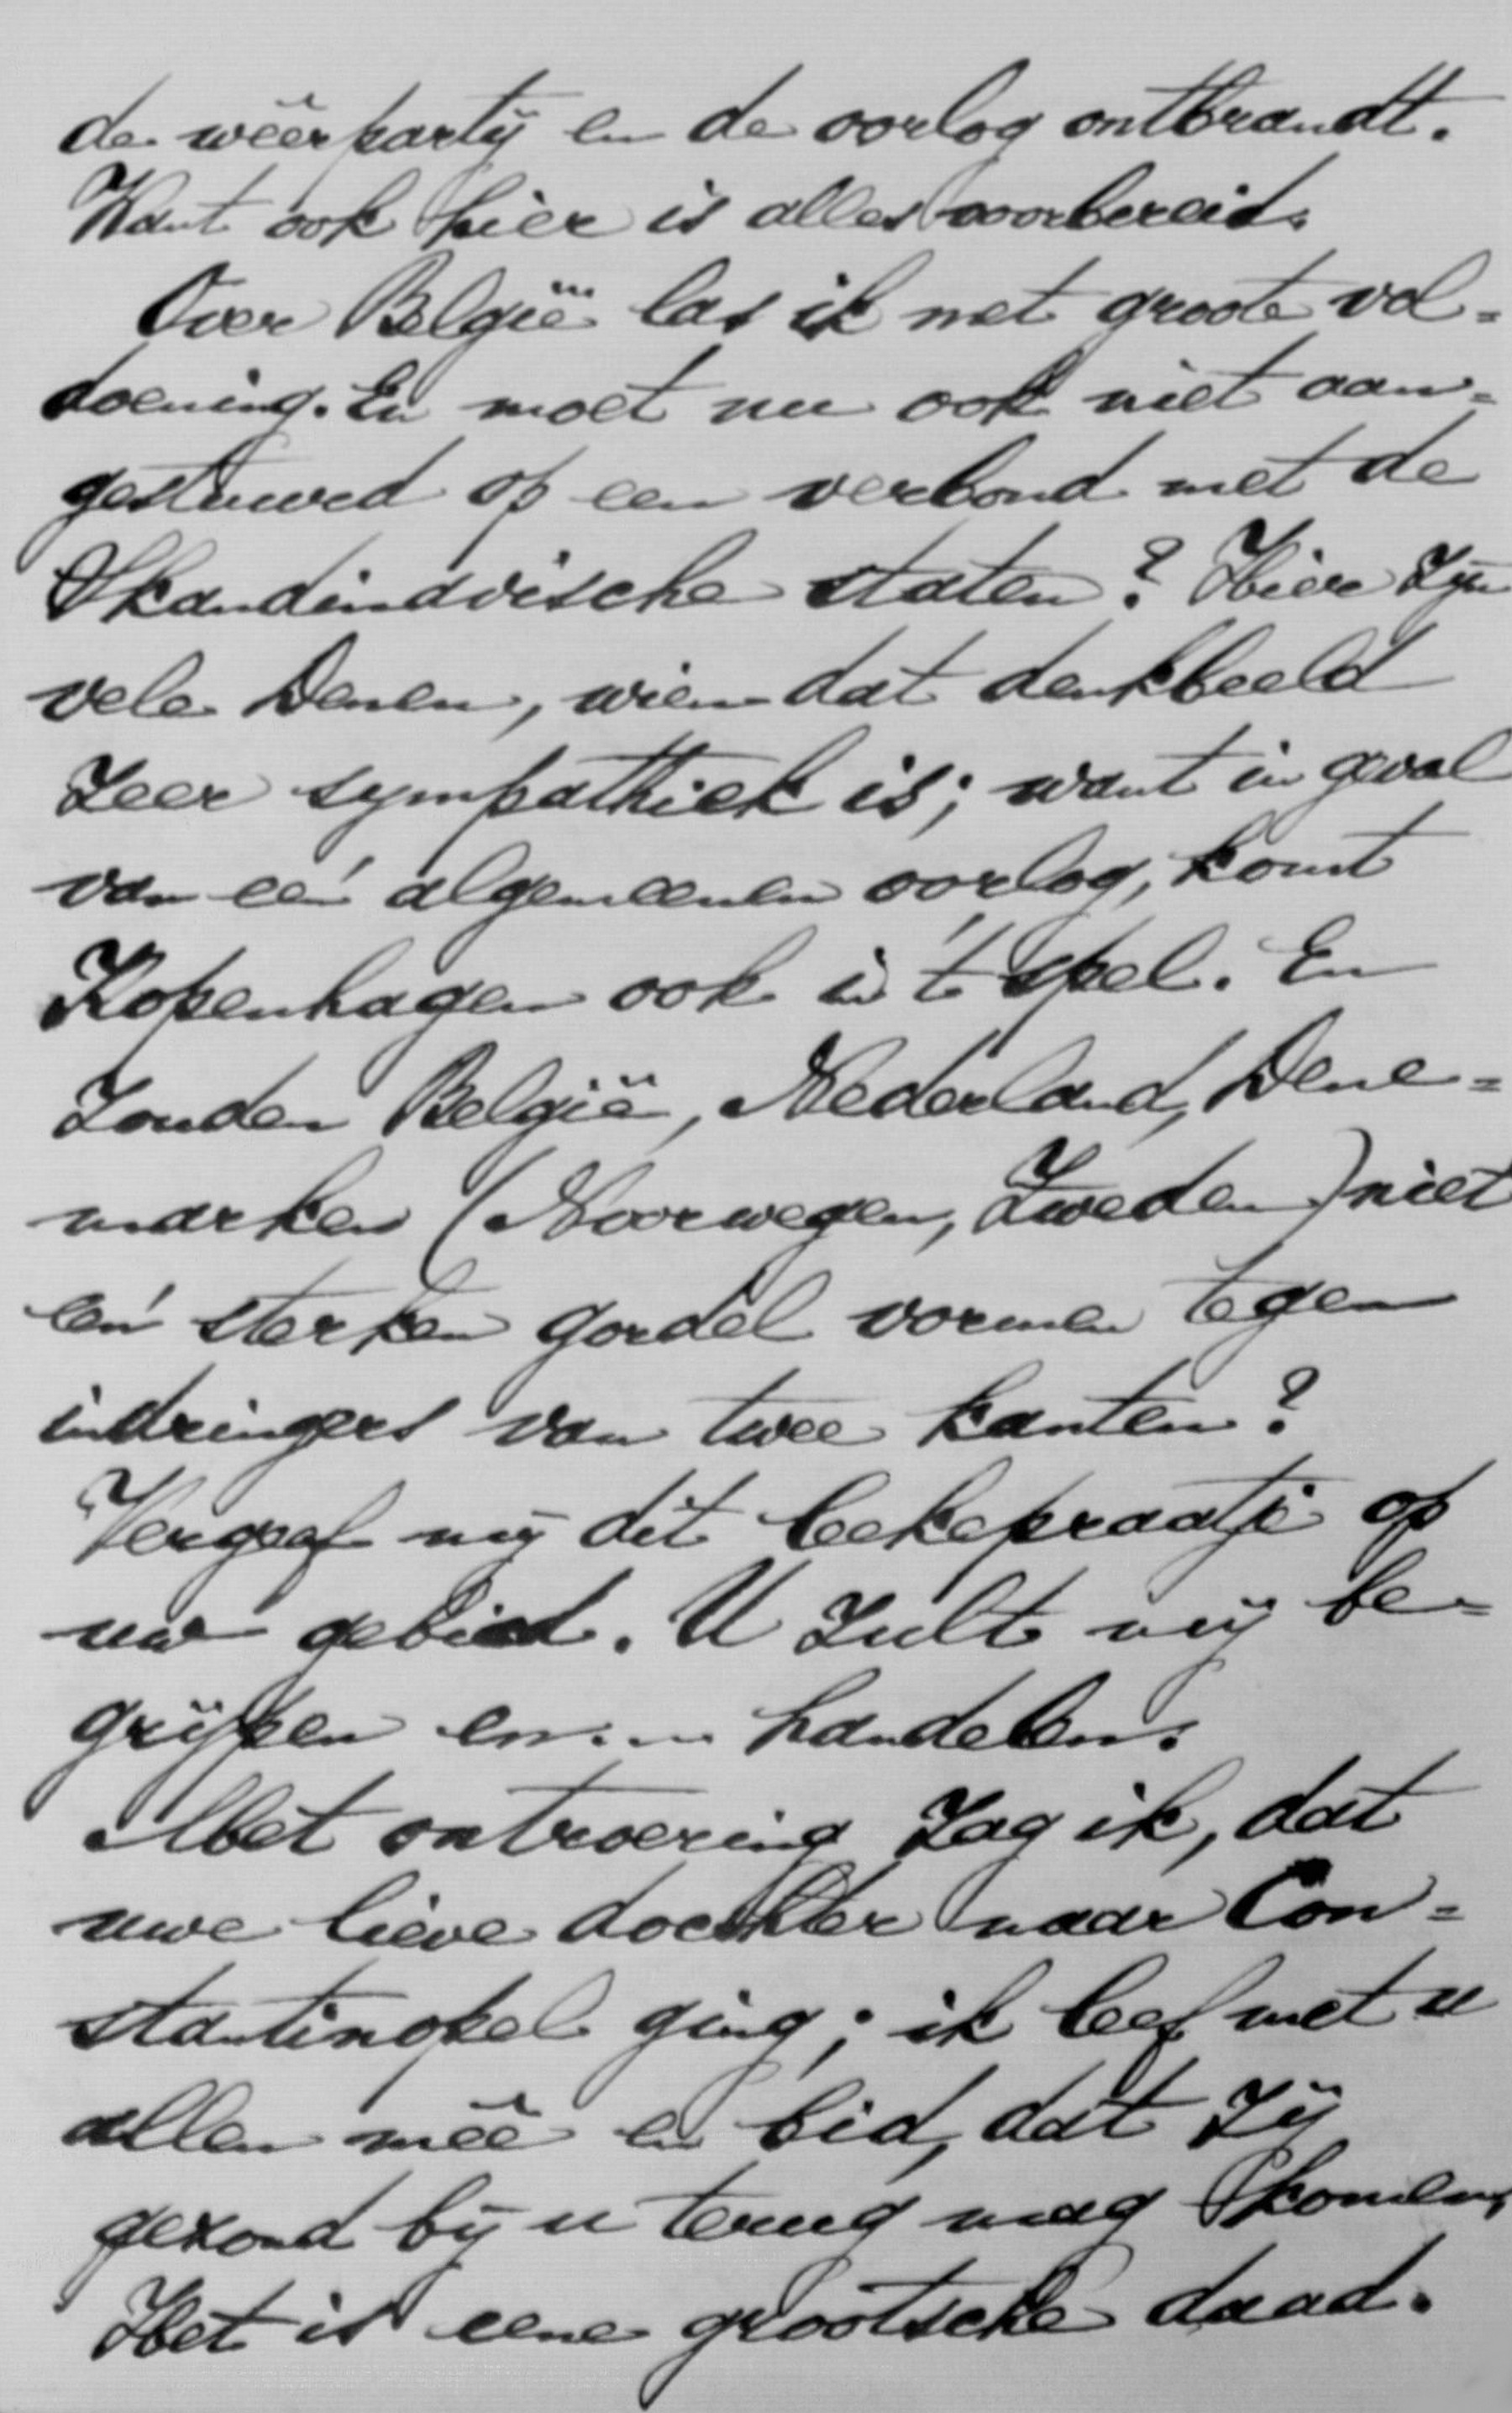 de weêrpartij en de oorlog ontbrandt.
Want ook hier is alles voorbereid.
Over België las ik met groote vol=
doening. En moet nu ook niet aan=
gestuwed op een verbond met de
Skandinavische staten? Hier zijn
vele Denen, wien dat denkbeeld
zeer sympathiek is; want in geval
van een algemeenen oorlog, komt
Kopenhagen ook in 't spel. En
zouden België, Nederland, Dene=
marken (Noorwegen, Zweden) niet
een sterken gordel vormen tegen
indringers van twee kanten?
Vergeef mij dit leekepraatje op
uw gebied. U zult mij be=
grijpen en .... handelen.
Met ontroering zag ik, dat
uwe lieve dochter naar Con=
stantinopel ging; ik leef met u
allen meê en bid, dat zij
gezond bij u terug mag komen.
Het is eene grootsche daad.